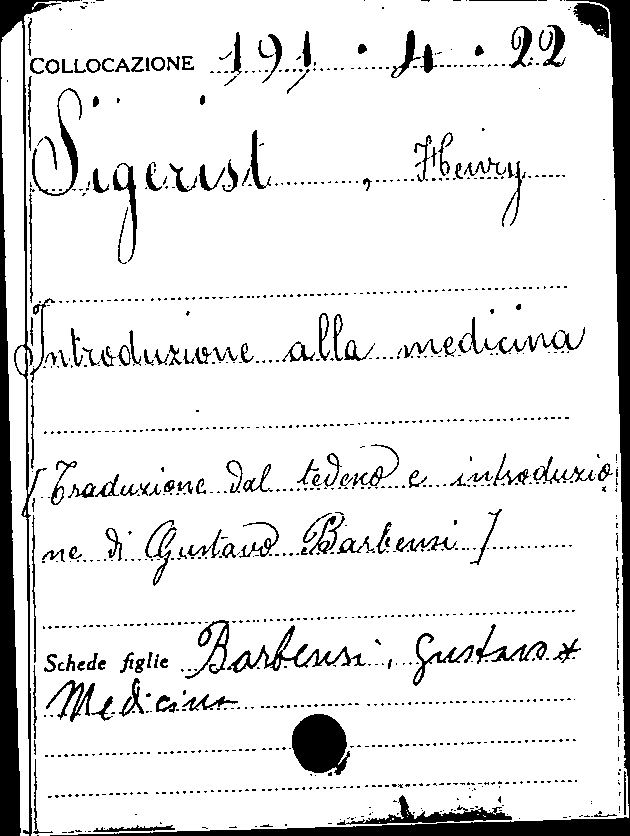 COLLOCAZIONE 191 . 4 . 22
Sigerist, Henry
Introduzione alla medicina
[Traduzione dal tedesco e introduzio
ne di Gustavo Barbensi]
Schede figlie Barbensi, Gustavo *
Medicina